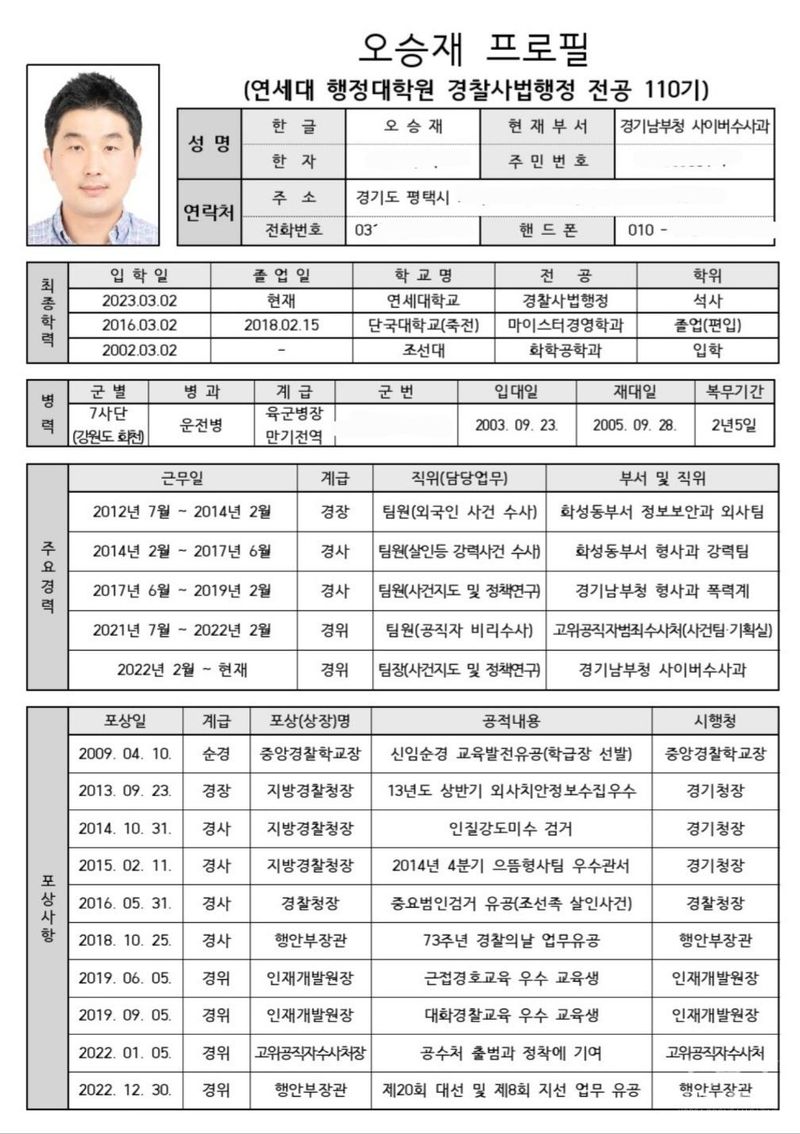 오승재 프로필
(연세대 행정대학원 경찰사법행정 전공 110기)
성 명 한 글 오 승 재 현 재 부 서 경기남부청 사이버수사과
한 자 주 민 번 호
연락처 주 소 경기도 평택시
전화번호 03 핸 드 폰 010 -
최종학력 입 학 일 졸 업 일 학 교 명 전 공 학위
2023.03.02 현재 연세대학교 경찰사법행정 석사
2016.03.02 2018.02.15 단국대학교(죽전) 마이스터경영학과 졸업(편입)
2002.03.02 - 조선대 화학공학과 입학
병력 군 별 병 과 계 급 군 번 입대일 재대일 복무기간
7사단 (강원도 화천) 운전병 육군병장 만기전역 2003. 09. 23. 2005. 09. 28. 2년5일
주요경력 근무일 계급 직위(담당업무) 부서 및 직위
2012년 7월 ~ 2014년 2월 경장 팀원(외국인 사건 수사) 화성동부서 정보보안과 외사팀
2014년 2월 ~ 2017년 6월 경사 팀원(살인등 강력사건 수사) 화성동부서 형사과 강력팀
2017년 6월 ~ 2019년 2월 경사 팀원(사건지도 및 정책연구) 경기남부청 형사과 폭력계
2021년 7월 ~ 2022년 2월 경위 팀원(공직자 비리수사) 고위공직자범죄수사처(사건팀·기획실)
2022년 2월 ~ 현재 경위 팀장(사건지도 및 정책연구) 경기남부청 사이버수사과
포상사항 포상일 계급 포상(상장)명 공적내용 시행청
2009. 04. 10. 순경 중앙경찰학교장 신임순경 교육발전유공(학급장 선발) 중앙경찰학교장
2013. 09. 23. 경장 지방경찰청장 13년도 상반기 외사치안정보수집우수 경기청장
2014. 10. 31. 경사 지방경찰청장 인질강도미수 검거 경기청장
2015. 02. 11. 경사 지방경찰청장 2014년 4분기 으뜸형사팀 우수관서 경기청장
2016. 05. 31. 경사 경찰청장 중요범인검거 유공(조선족 살인사건) 경찰청장
2018. 10. 25. 경사 행안부장관 73주년 경찰의날 업무유공 행안부장관
2019. 06. 05. 경위 인재개발원장 근접경호교육 우수 교육생 인재개발원장
2019. 09. 05. 경위 인재개발원장 대화경찰교육 우수 교육생 인재개발원장
2022. 01. 05. 경위 고위공직자수사처장 공수처 출범과 정착에 기여 고위공직자수사처
2022. 12. 30. 경위 행안부장관 제20회 대선 및 제8회 지선 업무 유공 행안부장관